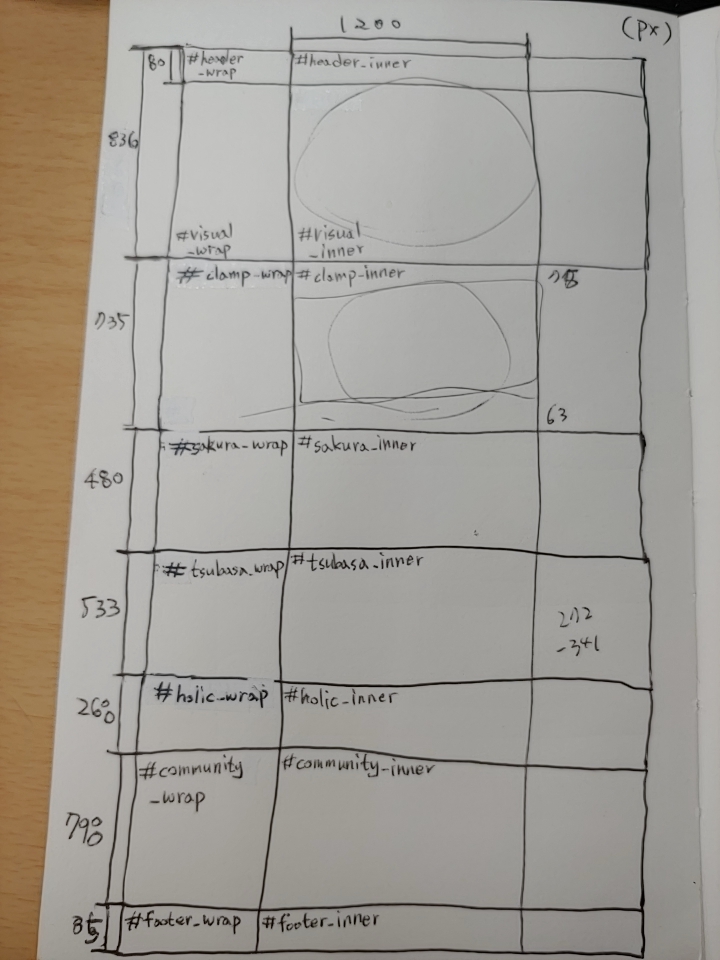 1200
(px)
80
#header
_wrap
#header_inner
836
#visual
_wrap
#visual
_inner
#clamp-wrap
#clamp-inner
735
63
#sakura-wrap
#sakura_inner
480
#tsubasa_wrap
#tsubasa_inner
533
272
-341
#holic_wrap
#holic_inner
260
#community
_wrap
#community_inner
790
#footer_wrap
#footer_inner